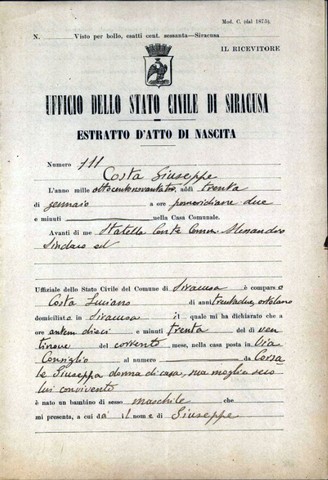 Mod. C. (dal 1875).
N. Visto per bollo, esatti cent. sessanta—Siracusa
IL RICEVITORE
UFFICIO DELLO STATO CIVILE DI SIRACUSA
ESTRATTO D'ATTO DI NASCITA
Numero 111
Costa Giuseppe
L'anno mille ottocentonovantatre, addì trenta
di gennaio a ore pomeridiane due
e minuti nella Casa Comunale.
Avanti di me Statella Conte Comm. Alessandro
Sindaco ed
Ufficiale dello Stato Civile del Comune di Siracusa è comparso
Costa Luciano di anni trentadue, ortolano
domiciliato in Siracusa il quale mi ha dichiarato che a
ore antem. dieci e minuti trenta del di ven
tinove del corrente mese, nella casa posta in Via
Consiglio al numero da
le Giuseppa donna di casa, sua moglie seco
lui convivente
è nato un bambino di sesso maschile che
mi presenta, a cui dà il nome di Giuseppe